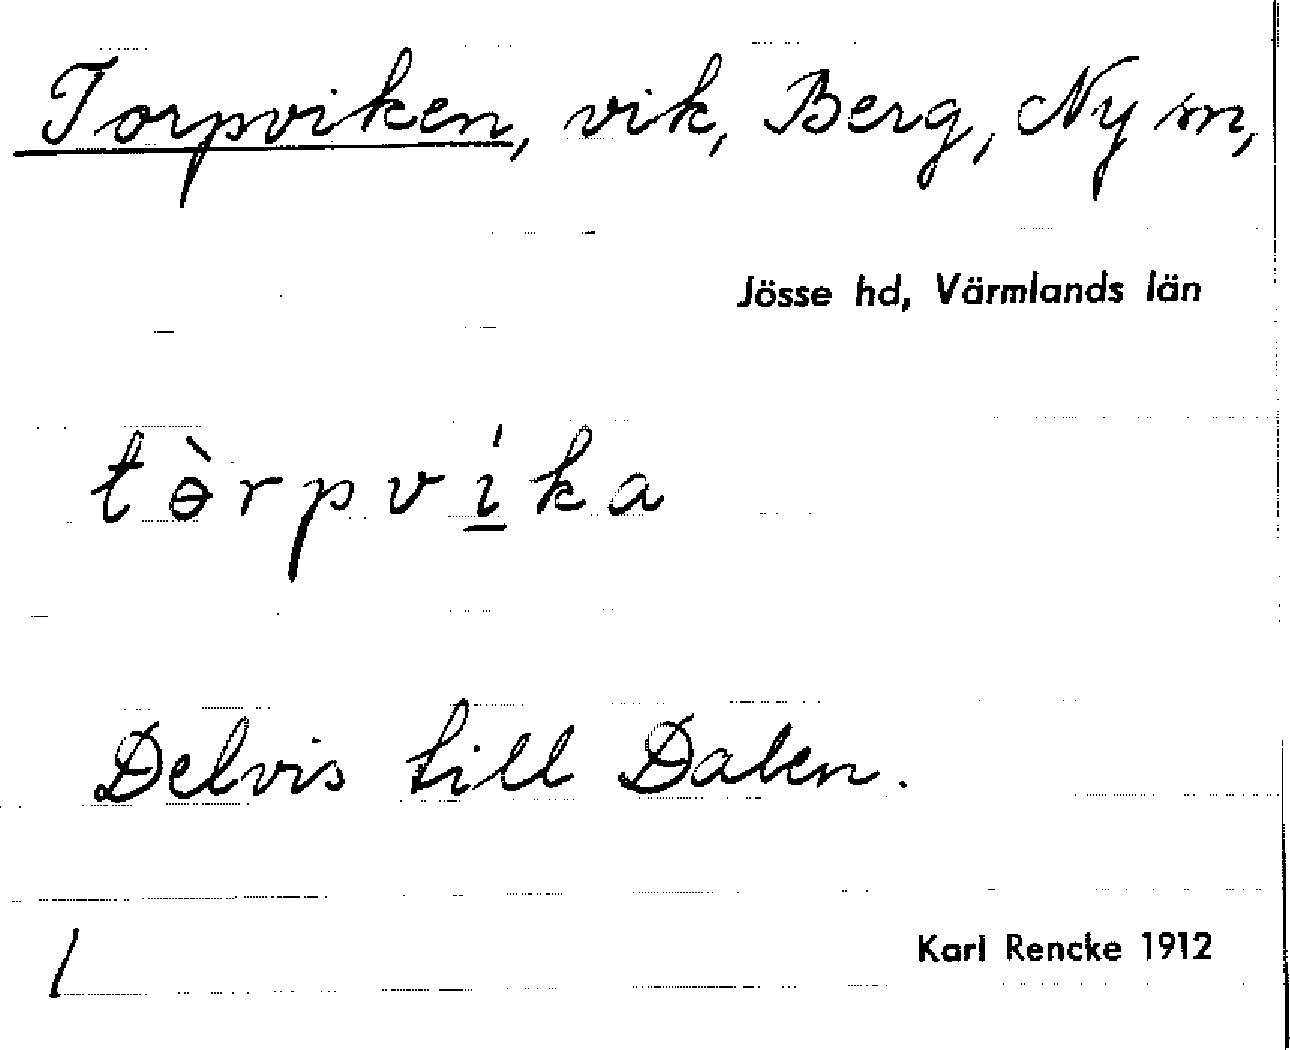 Torpviken, vik, Berg, Ny sn,
Jösse hd, Värmlands län
tɵ̀rpví̲ka
Delvis till Dalen.
Karl Rencke 1912